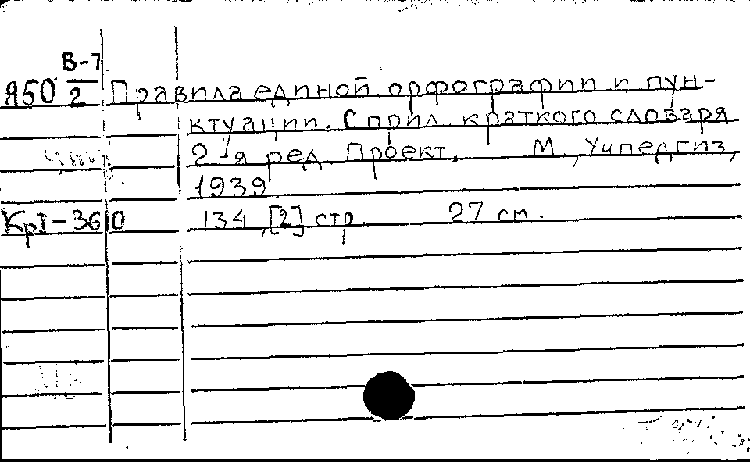 В-7
Я50 2 Правила единой орфографии и пун-
ктуации. С прил. краткого словаря
2-я ред. Проект. М., Учпедгиз,
1939
КрI-3610 134, [2] стр. 27 см.